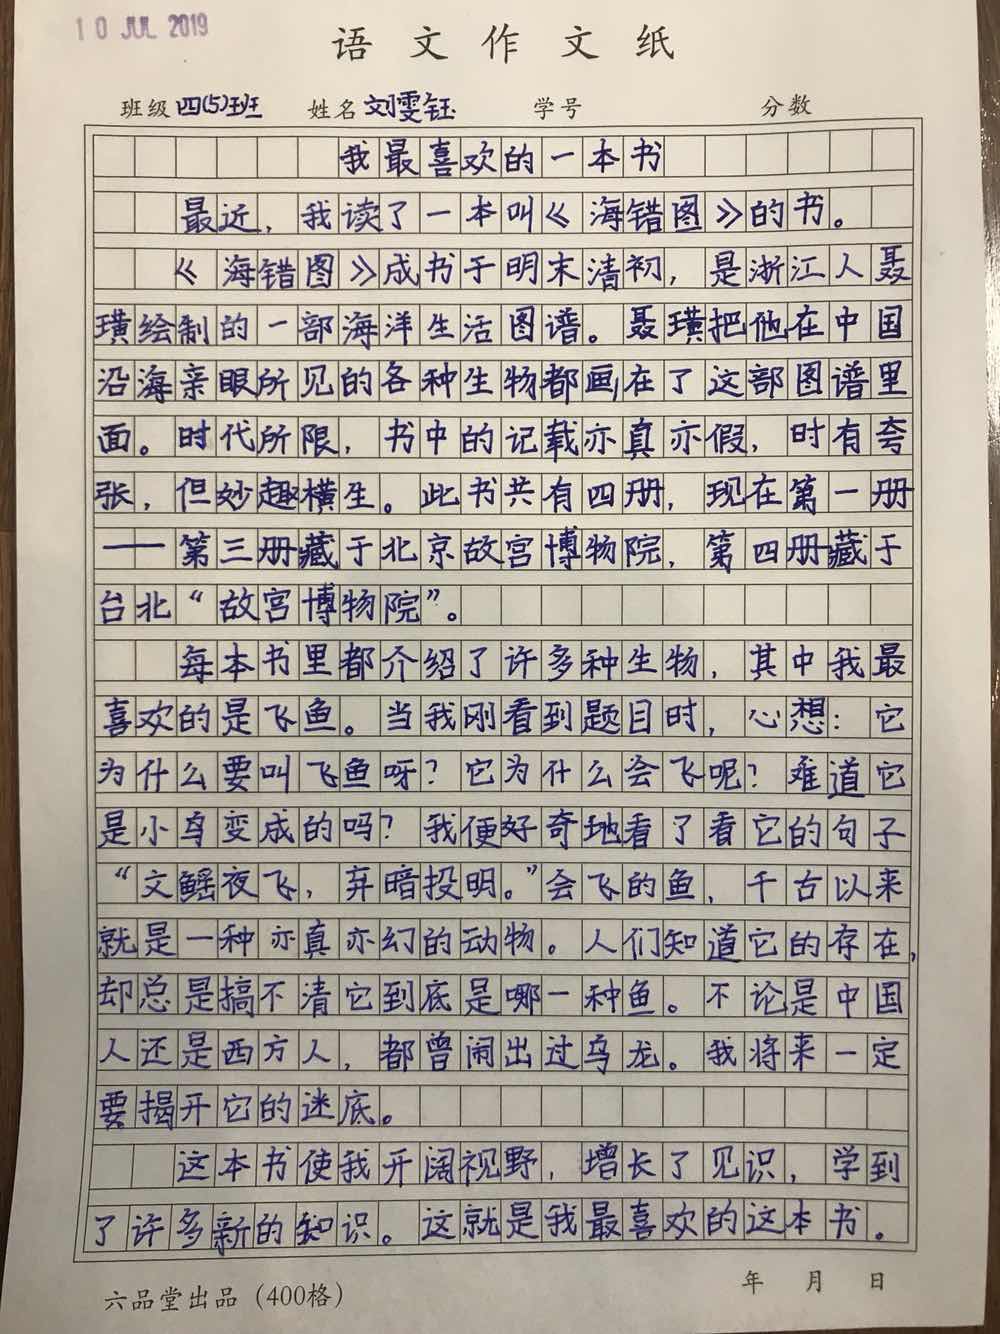 10 JUL 2019
语文作文纸
班级 四(5)班 姓名 刘雯钰 学号 分数
我最喜欢的一本书
最近，我读了一本叫《海错图》的书。
《海错图》成书于明末清初，是浙江人聂
璜绘制的一部海洋生活图谱。聂璜把他在中国
沿海亲眼所见的各种生物都画在了这部图谱里
面。时代所限，书中的记载亦真亦假，时有夸
张，但妙趣横生。此书共有四册，现在第一册
——第三册藏于北京故宫博物院，第四册藏于
台北“故宫博物院”。
每本书里都介绍了许多种生物，其中我最
喜欢的是飞鱼。当我刚看到题目时，心想：它
为什么要叫飞鱼呀？它为什么会飞呢？难道它
是小鸟变成的吗？我便好奇地看了看它的句子
“文鳐夜飞，弃暗投明。”会飞的鱼，千古以来
就是一种亦真亦幻的动物。人们知道它的存在，
却总是搞不清它到底是哪一种鱼。不论是中国
人还是西方人，都曾闹出过乌龙。我将来一定
要揭开它的迷底。
这本书使我开阔视野，增长了见识，学到
了许多新的知识。这就是我最喜欢的这本书。
年 月 日
六品堂出品（400格）